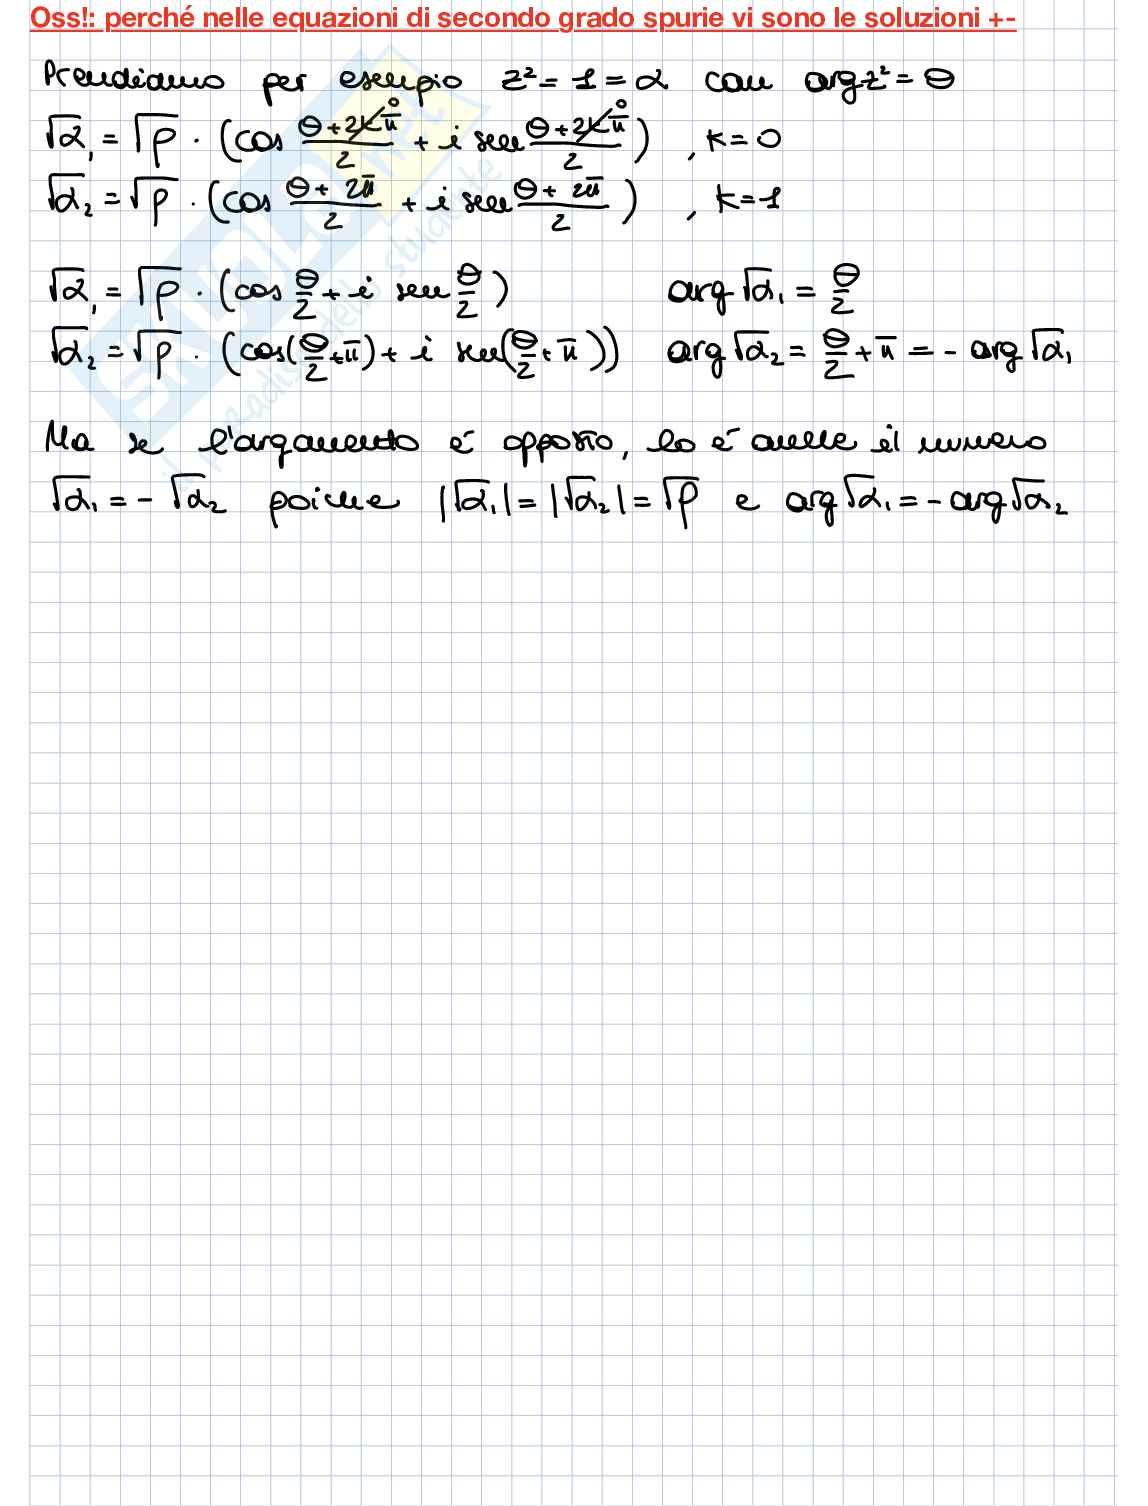 Oss!: perché nelle equazioni di secondo grado spurie vi sono le soluzioni +-
Prendiamo per esempio z² = 1 = α con arg z² = θ
√α₁ = √ρ · (cos (θ + 2kπ)/2 + i sen (θ + 2kπ)/2) , k = 0
√α₂ = √ρ · (cos (θ + 2π)/2 + i sen (θ + 2π)/2) , k = 1
√α₁ = √ρ · (cos θ/2 + i sen θ/2) arg √α₁ = θ/2
√α₂ = √ρ · (cos(θ/2 + π) + i sen(θ/2 + π)) arg √α₂ = θ/2 + π = - arg √α₁
Ma se l'argomento è opposto, lo è anche il numero
√α₁ = - √α₂ poiche |√α₁| = |√α₂| = √ρ e arg √α₁ = - arg √α₂